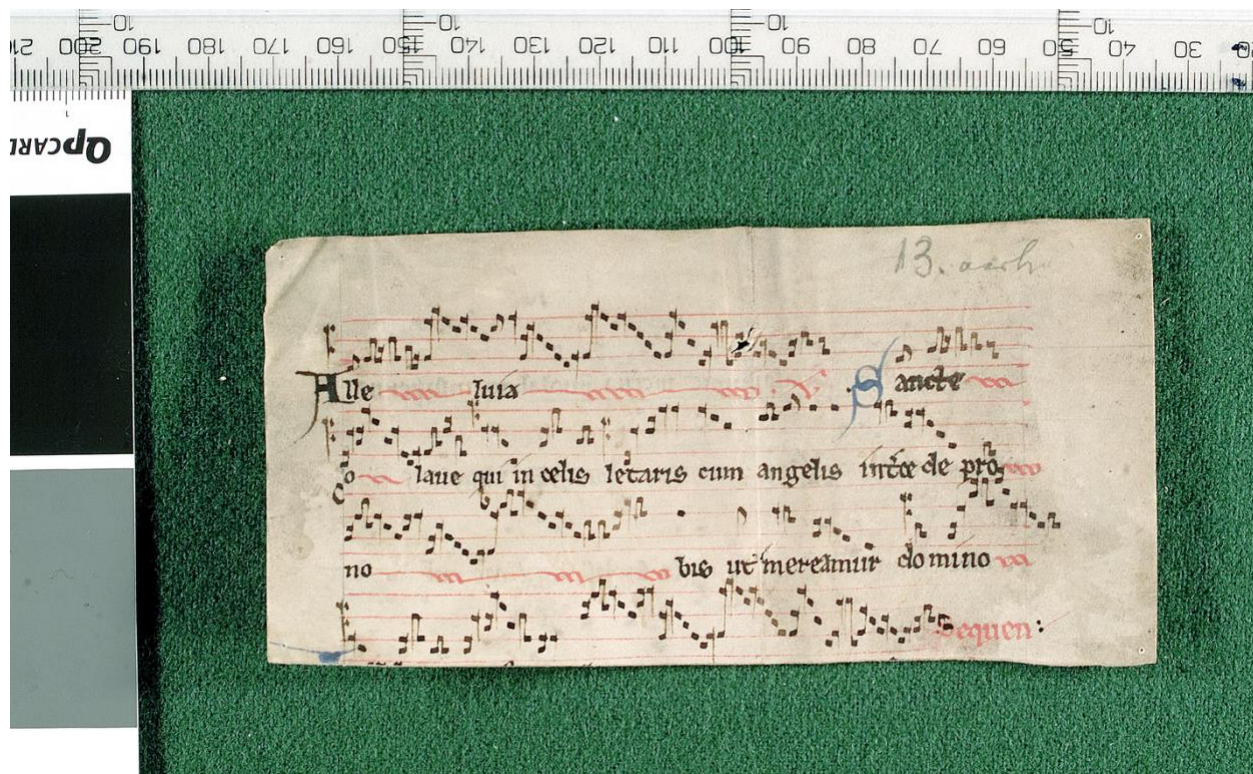 10 10 10 10
200 190 180 170 160 150 140 130 120 110 100 90 80 70 60 50 40 30
QPCARD
13. aarh
Alle luia Sancte
o laue qui in celis letaris cum angelis int̄cede pro
no bis ut mereamur domino
Sequen: